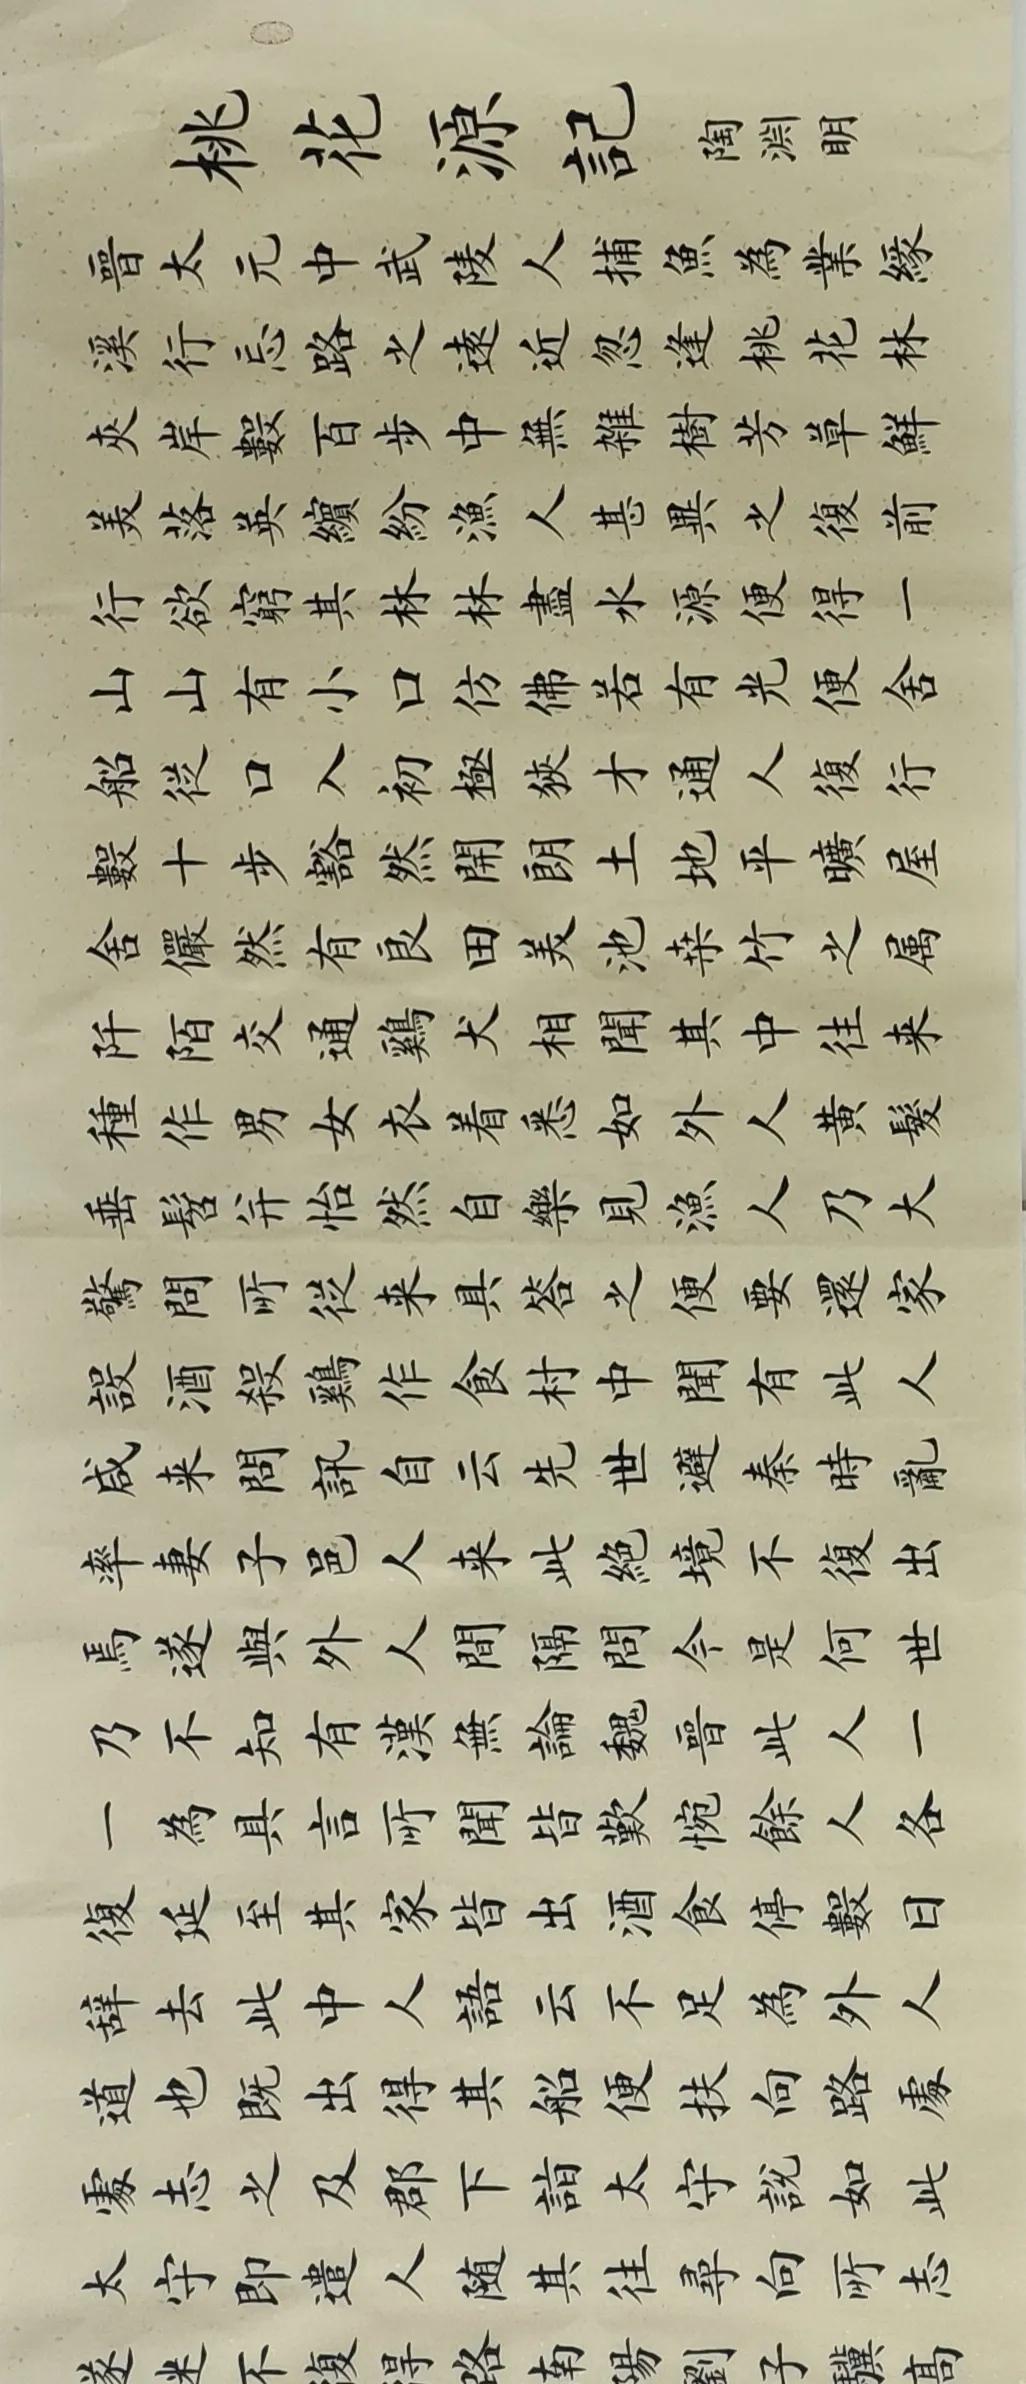 桃花源記 陶淵明
晉太元中武陵人捕魚為業緣
溪行忘路之遠近忽逢桃花林
夾岸數百步中無雜樹芳草鮮
美落英繽紛漁人甚異之復前
行欲窮其林林盡水源便得一
山山有小口仿佛若有光便舍
船從口入初極狹才通人復行
數十步豁然開朗土地平曠屋
舍儼然有良田美池桑竹之属
阡陌交通鷄犬相聞其中往来
種作男女衣着悉如外人黄髮
垂髫并怡然自樂見漁人乃大
驚問所從来具答之便要還家
設酒殺鷄作食村中聞有此人
咸来問訊自云先世避秦時亂
率妻子邑人来此絶境不復出
焉遂與外人間隔問今是何世
乃不知有漢無論魏晉此人一
一為具言所聞皆歎惋餘人各
復延至其家皆出酒食停數日
辭去此中人語云不足為外人
道也既出得其船便扶向路處
處志之及郡下詣太守說如此
太守即遣人随其往尋向所志
遂迷不復得路南陽劉子驥高